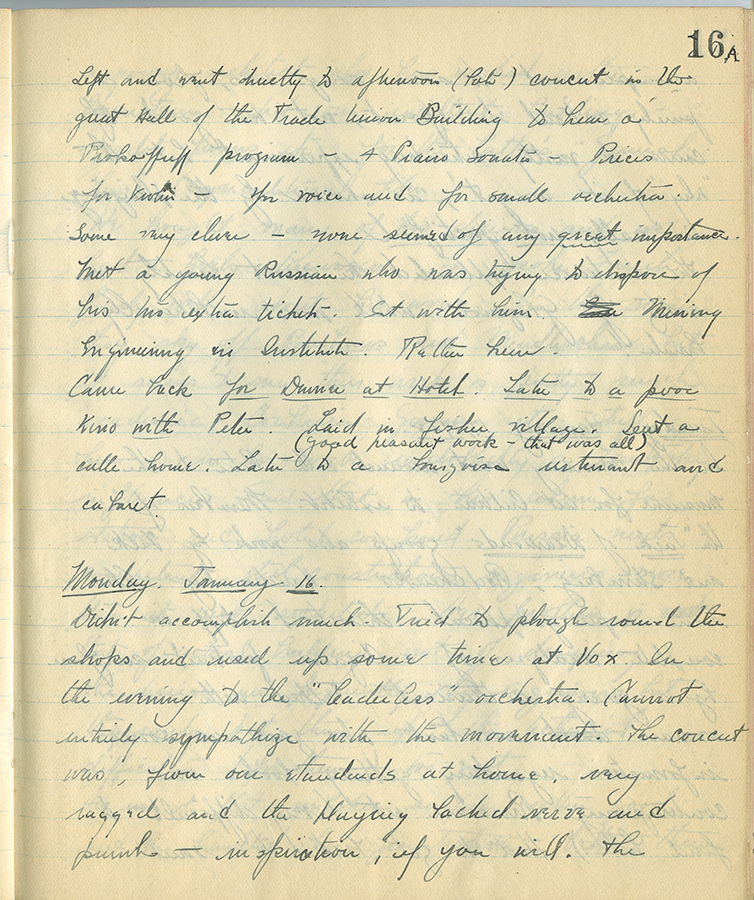 16A
Left and went directly to afternoon (late) concert in the
great Hall of the Trade Union Building to hear a
Prokoffieff program — 4 Piano Sonata — Pieces
for Violin — for voice and for small orchestra.
Some very clever — none seemed of any great importance.
Met a young Russian who was trying to dispose of
his two extra tickets. Sat with him. Mining
Engineering in Institute. Rather
Came back for Dinner at Hotel. Later to a poor
Kino with Peter. Laid in fisher village. Sent a
(good peasant work – that was all)
cable home. Later to a bourgoise resturant and
cabaret.
Monday. January 16.
Didn't accomplish much. Tried to plough round the
shops and used up some time at Vox. In
the evening to the "leaderless" orchestra. Cannot
entirely sympathize with the movement. The concert
was, from our standards at home, very
ragged and the playing lacked verve and
punch — inspiration, if you will. The